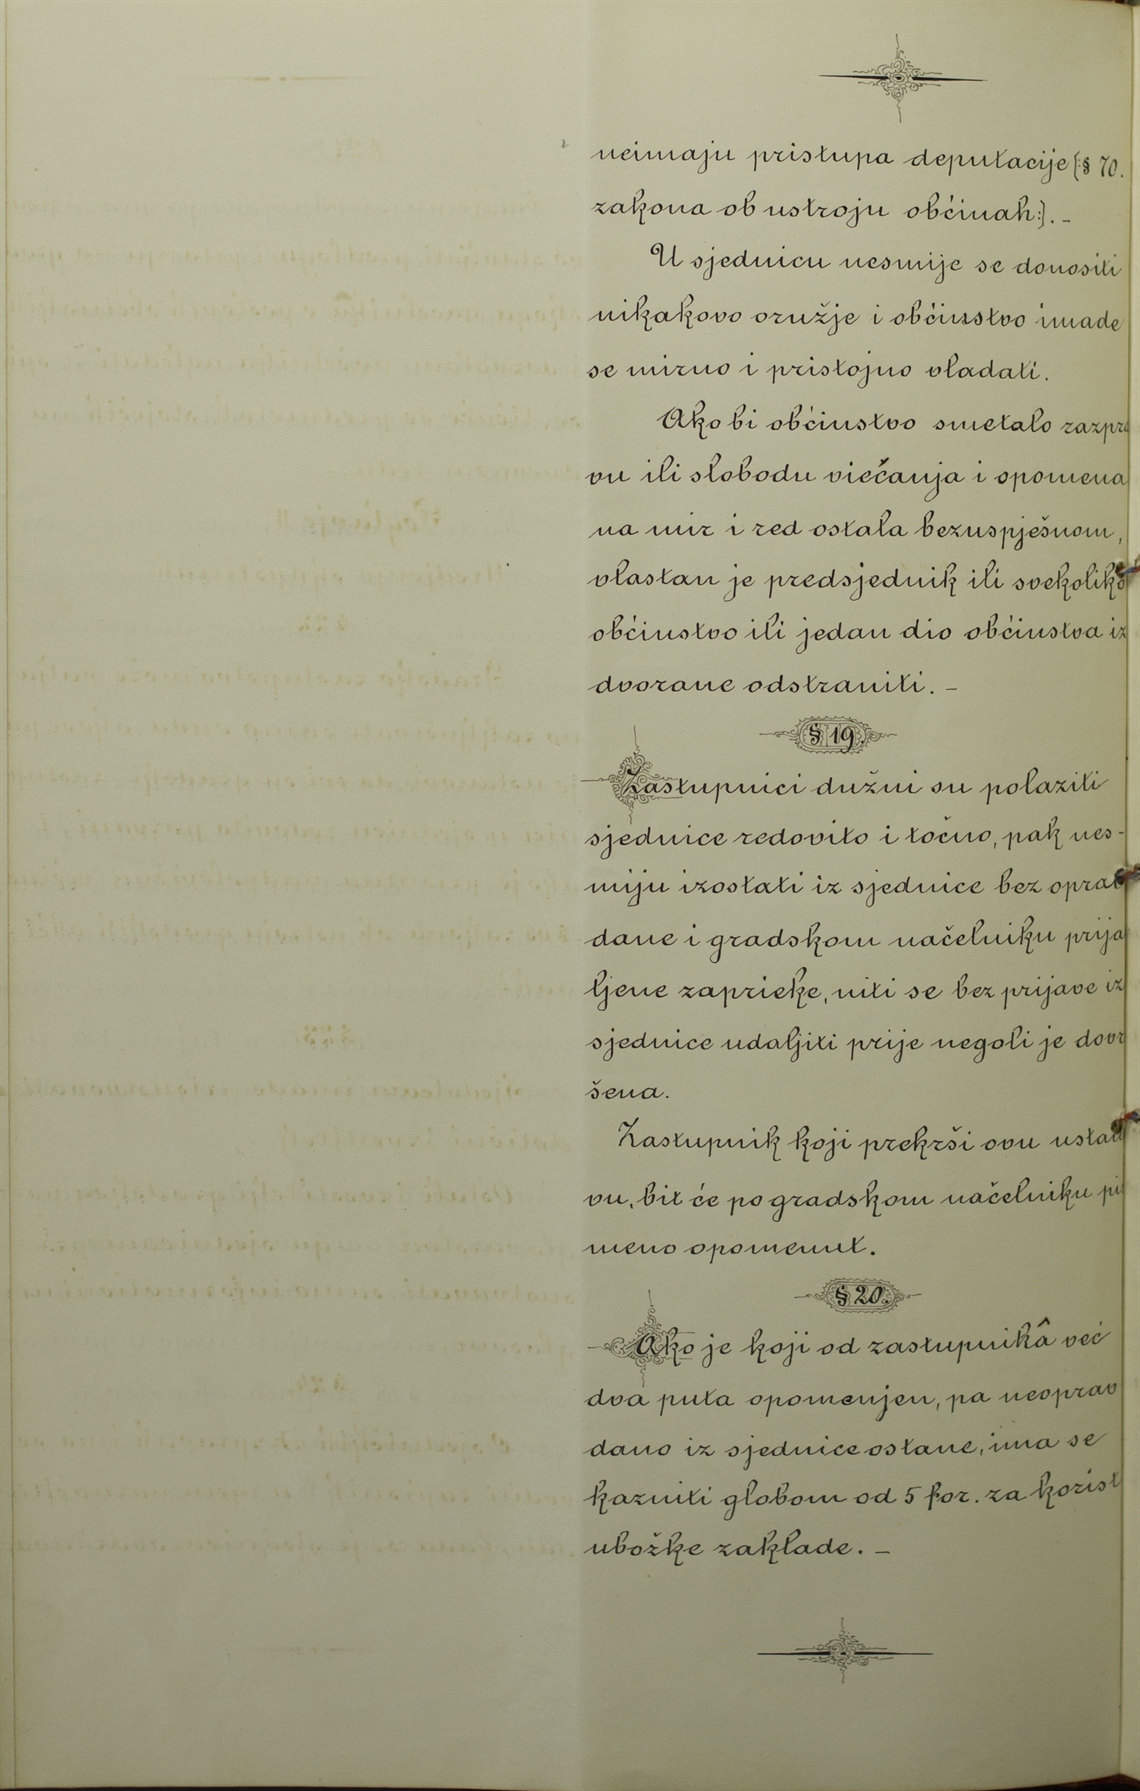 neimaju pristupa deputacije (:§ 70.
zakona ob ustroju občinah:). –
U sjednicu nesmije se donositi
nikakovo oružje i občinstvo imade
se mirno i pristojno vladati.
Ako bi občinstvo smetalo razpra
vu ili slobodu viećanja i opomena
na mir i red ostala bezuspješnom,
vlastan je predsjednik ili svekoliko
občinstvo ili jedan dio občinstva iz
dvorane odstraniti. –
§ 19.
Zastupnici dužni su polaziti
sjednice redovito i točno, pak nes-
miju izostati iz sjednice bez oprav
dane i gradskom načelniku prija
ljene zaprieke, niti se bez prijave iz
sjednice udaljiti prije negoli je dovr
šena.
Zastupnik koji prekrši ovu usta
vu, bit će po gradskom načelniku pi
meno opomenut.
§ 20.
Ako je koji od zastupnikâ već
dva puta opomenjen, pa neoprav
dano iz sjednice ostane, ima se
kazniti globom od 5 for. za korist
ubožke zaklade. –